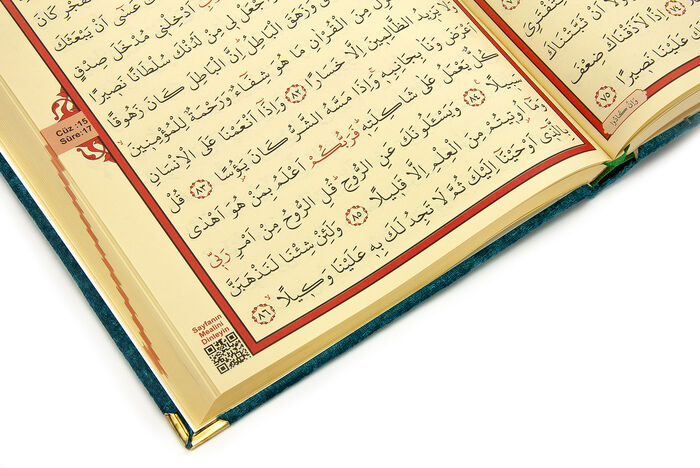 لِتَفْتَرِيَ
اَنْ ثَبَّتْنَاكَ
اِذًا لَاَذَقْنَاكَ ضِعْفَ
لَكَ عَلَيْنَا نَصٖيرًا ٧٥
وَاِنْ كَادُوا
الْفَجْرِ كَانَ
عَسٰٓى اَنْ يَبْعَثَكَ
اَدْخِلْنٖي مُدْخَلَ صِدْقٍ
لٖي مِنْ لَدُنْكَ سُلْطَانًا نَصٖيرًا
وَزَهَقَ الْبَاطِلُ اِنَّ الْبَاطِلَ كَانَ زَهُوقًا
مِنَ الْقُرْاٰنِ مَا هُوَ شِفَٓاءٌ وَرَحْمَةٌ لِلْمُؤْمِنٖينَ
يَزٖيدُ الظَّالِمٖينَ اِلَّا خَسَارًا ٨٢ وَاِذَٓا اَنْعَمْنَا عَلَى الْاِنْسَانِ
اَعْرَضَ وَنَاٰ بِجَانِبِهٖ وَاِذَا مَسَّهُ الشَّرُّ كَانَ يَؤُسًا ٨٣ قُلْ
كُلٌّ يَعْمَلُ عَلٰى شَاكِلَتِهٖ فَرَبُّكُمْ اَعْلَمُ بِمَنْ هُوَ اَهْدٰى
سَبٖيلًا ٨٤ وَيَسْـَٔلُونَكَ عَنِ الرُّوحِ قُلِ الرُّوحُ مِنْ اَمْرِ رَبّٖي
وَمَٓا اُوتٖيتُمْ مِنَ الْعِلْمِ اِلَّا قَلٖيلًا ٨٥ وَلَئِنْ شِئْنَا لَنَذْهَبَنَّ
بِالَّذٖٓي اَوْحَيْنَٓا اِلَيْكَ ثُمَّ لَا تَجِدُ لَكَ بِهٖ عَلَيْنَا وَكٖيلًا ٨٦
Cüz :15
Sûre:17
Sayfanın
Mealini
Dinleyin